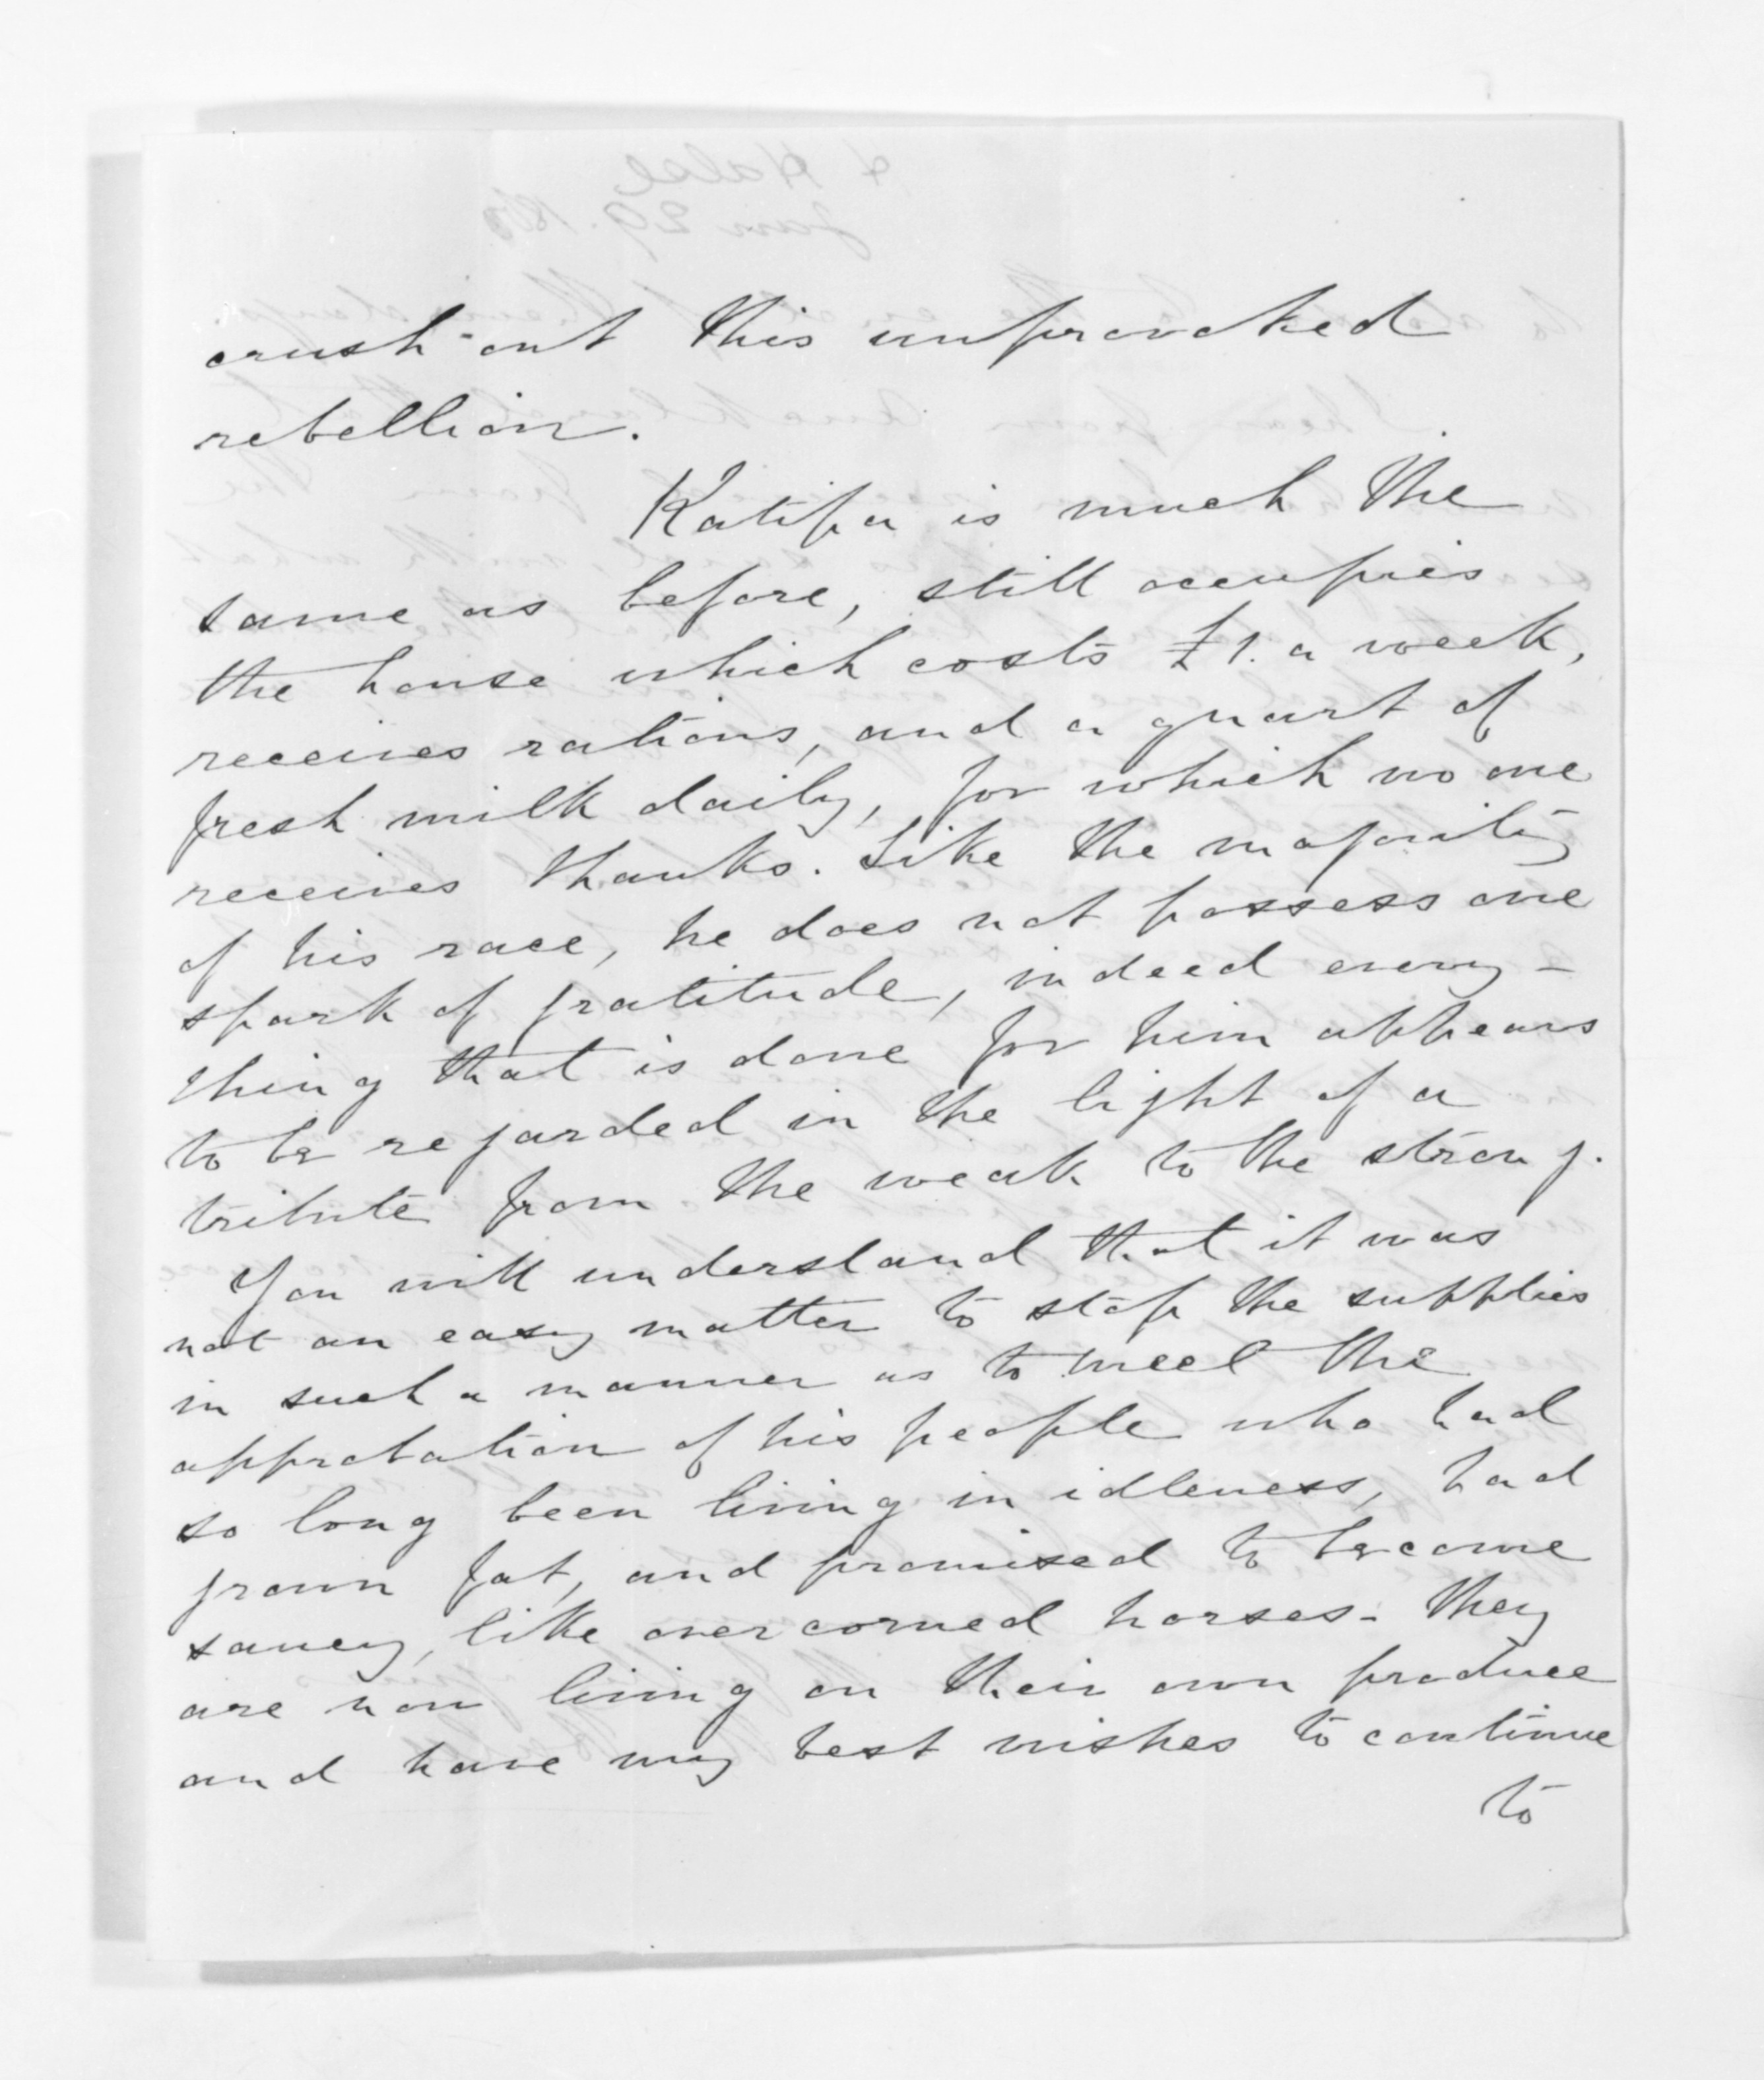 crush out this unprovoked
rebellion.
Katipa is much the
same as before, still occupies
the house which costs £1. a week,
receives rations, and a quart of
fresh milk daily, for which no one
receives thanks. Like the majority
of his race, he does not possess one
spark of gratitude, indeed every-
thing that is done for him appears
to be regarded in the light of a
tribute from the weak to the strong.
You will understand that it was
not an easy matter to stop the supplies
in such a manner as to meet the
approbation of his people who had
so long been living in idleness, had
grown fat, and promised to become
saucy, like over corned horses - they
are now living on their own produce
and have my best wishes to continue
to